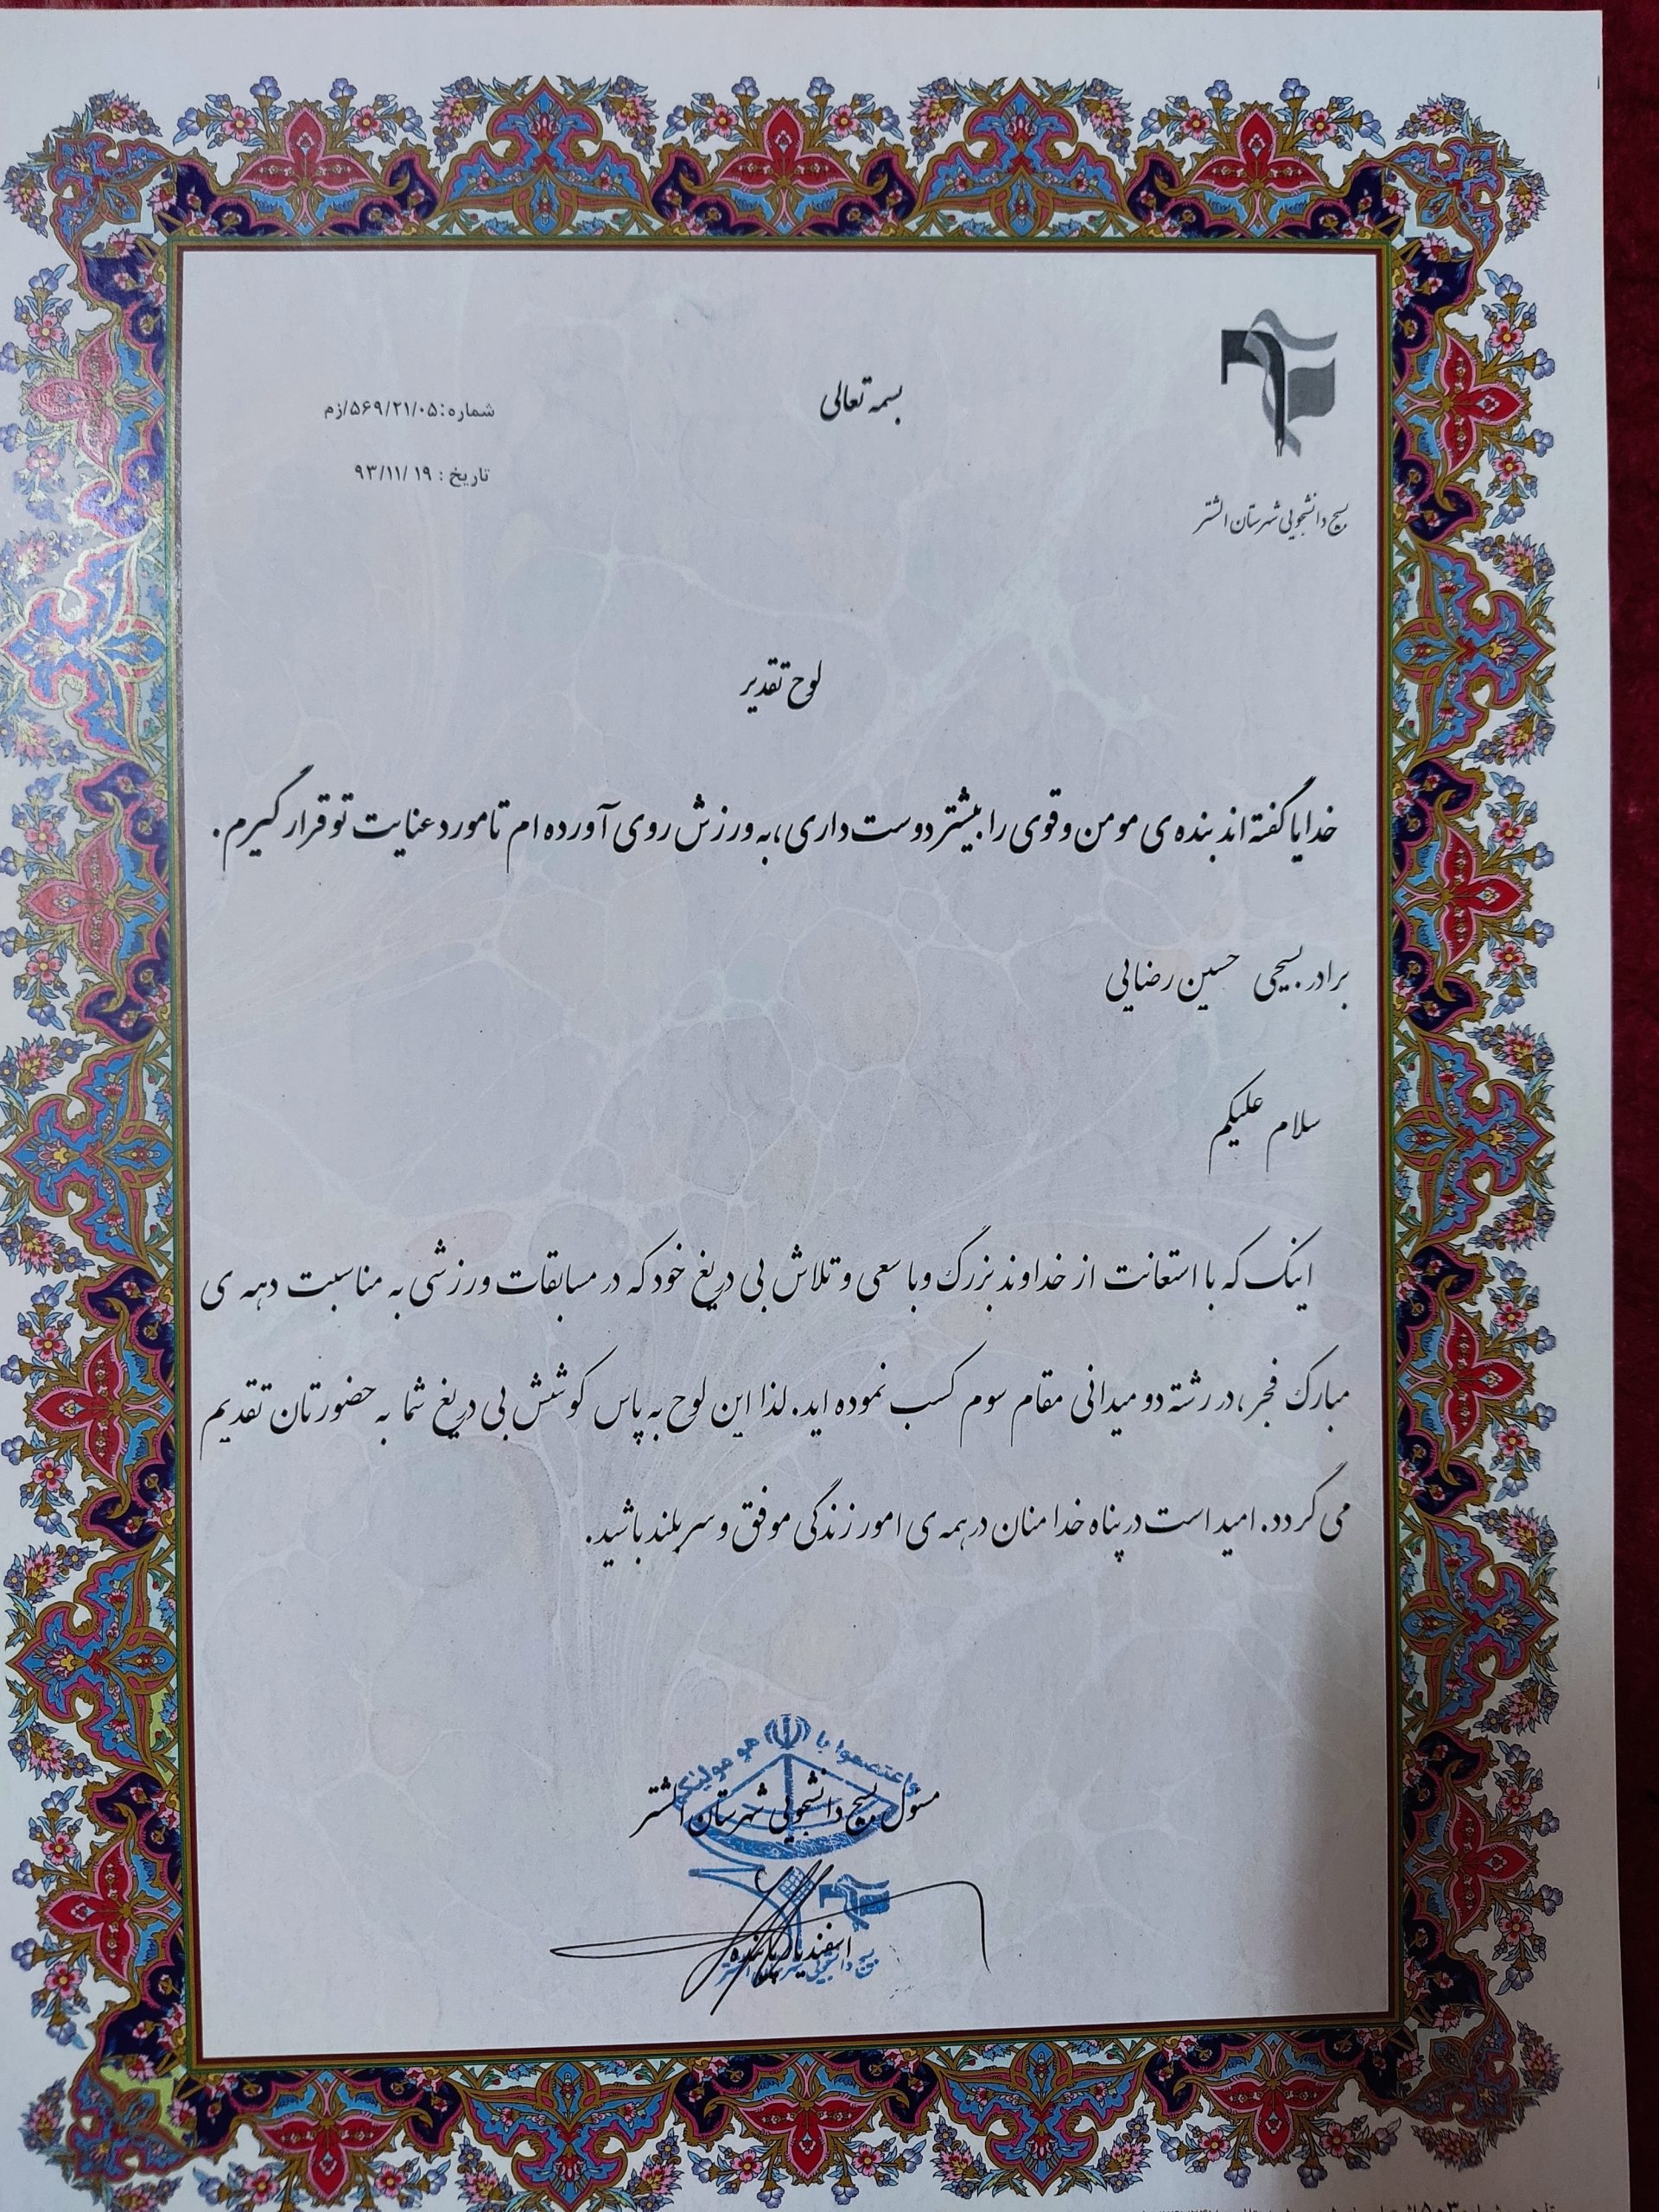 بسمه تعالی
شماره: ۵۶۹/۲۱/۰۵/زم
تاریخ : ۹۳/۱۱/۱۹
بسیج دانشجویی شهرستان الشتر
لوح تقدیر
خدایا گفته اند بنده ی مومن و قوی را بیشتر دوست داری، به ورزش روی آورده ام تا مورد عنایت تو قرار گیرم.
برادر بسیجی حسین رضایی
سلام علیکم
اینک که با استعانت از خداوند بزرگ و با سعی و تلاش بی دریغ خود که در مسابقات ورزشی به مناسبت دهه ی
مبارک فجر، در رشته دو میدانی مقام سوم کسب نموده اید. لذا این لوح به پاس کوشش بی دریغ شما به حضورتان تقدیم
می گردد. امید است در پناه خدا منان در همه ی امور زندگی موفق و سربلند باشید.
مسئول بسیج دانشجویی شهرستان الشتر
اسفندیار
بسیج دانشجویی